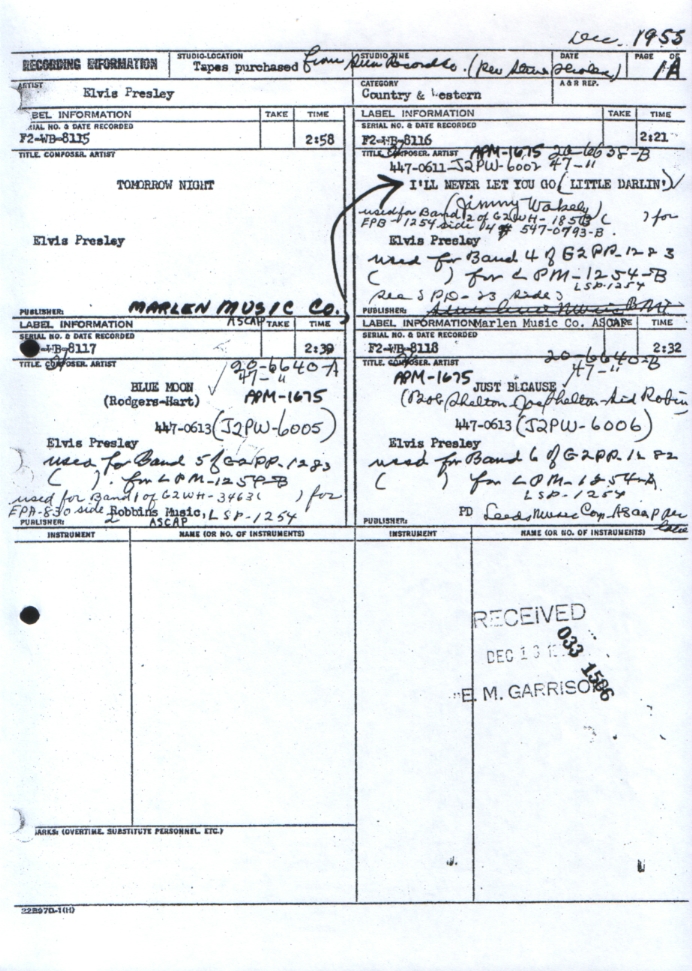 Dec. 1955
RECORDING INFORMATION
STUDIO-LOCATION
Tapes purchased from Sun Record Co. (Per Steve Sholes)
STUDIO TIME
DATE
PAGE OF
1A
ARTIST
Elvis Presley
CATEGORY
Country & Western
A & R REP.
LABEL INFORMATION TAKE TIME
SERIAL NO. & DATE RECORDED
F2-WB-8115 2:58
TITLE, COMPOSER, ARTIST
TOMORROW NIGHT
Elvis Presley
PUBLISHER:
LABEL INFORMATION TAKE TIME
SERIAL NO. & DATE RECORDED
F2-WB-8116 2:21
TITLE, COMPOSER, ARTIST APM-1675 20-6638-B
447-0611-J2PW-6002 47-"
I'LL NEVER LET YOU GO (LITTLE DARLIN')
(Jimmy Wakely)
used for Band 2 of G2WH- ( ) for
EPB-1254 side 4 # 547-0793-B
Elvis Presley
used for Band 4 of G2PP-1283
( ) for LPM-1254-B
LSP-1254
See SPD-23 side
PUBLISHER: BMI
MARLEN MUSIC CO.
ASCAP
LABEL INFORMATION TAKE TIME
SERIAL NO. & DATE RECORDED
-WB-8117 2:39
TITLE, COMPOSER, ARTIST 20-6640-A
47-"
BLUE MOON APM-1675
(Rodgers-Hart)
447-0613 (J2PW-6005)
Elvis Presley
used for Band 5 of G2PP-1283
( ) for LPM-1254-B
used for Band 1 of G2WH-3463 ( ) for
EPA-830 side 2 Robbins Music, LSP-1254
PUBLISHER: ASCAP
LABEL INFORMATION Marlen Music Co. ASCAP TIME
SERIAL NO. & DATE RECORDED
F2-WB-8118 2:32
TITLE, COMPOSER, ARTIST 20-6640-B
APM-1675 47-"
JUST BECAUSE
(Bob Shelton-Joe Shelton-Sid Robin
447-0613 (J2PW-6006)
Elvis Presley
used for Band 6 of G2PP-1282
( ) for LPM-1254-A
LSP-1254
PD Leeds Music Corp. ASCAP per
PUBLISHER:
INSTRUMENT NAME (OR NO. OF INSTRUMENTS) INSTRUMENT NAME (OR NO. OF INSTRUMENTS)
RECEIVED
DEC 13
E. M. GARRISON
033 1506
ARKS: (OVERTIME, SUBSTITUTE PERSONNEL, ETC.)